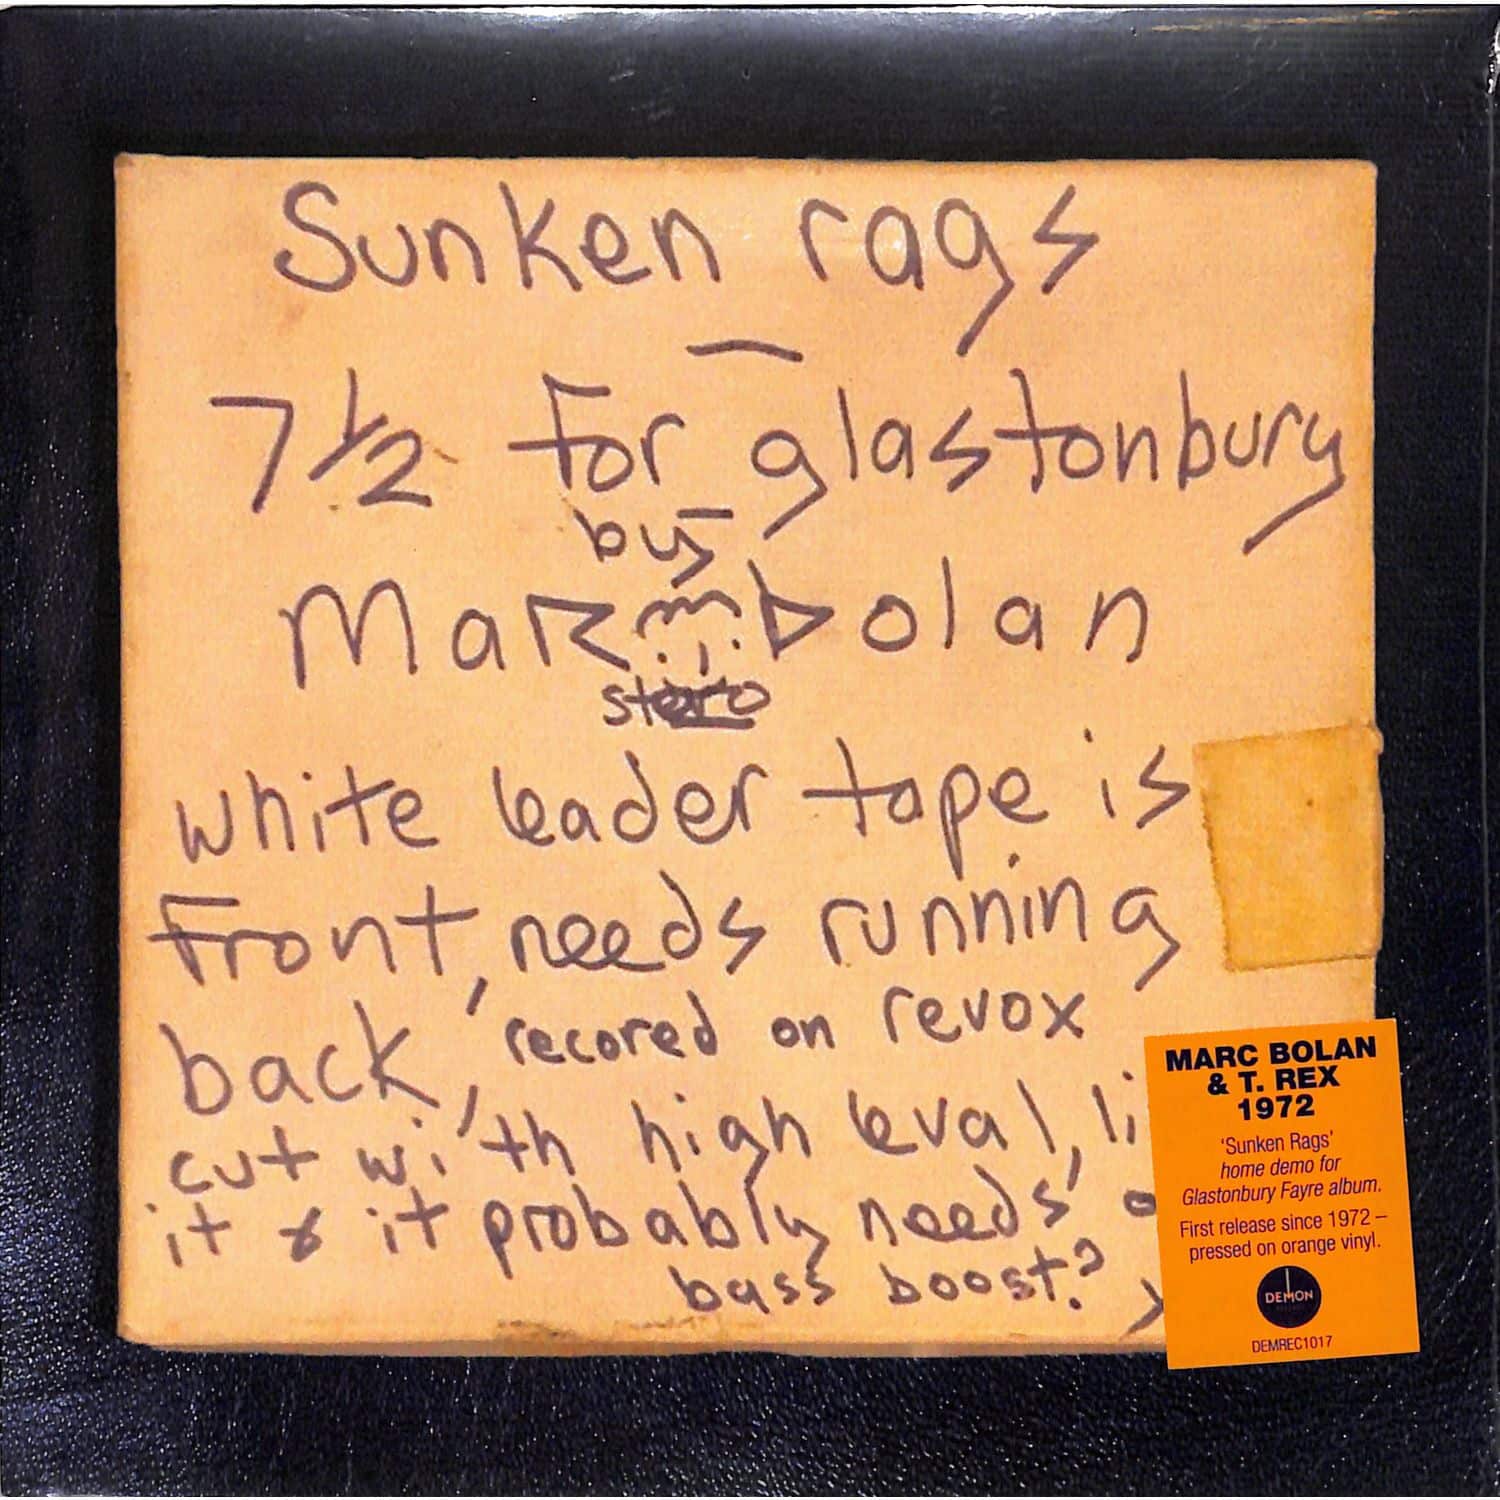 Sunken rags
7 1/2 for glastonbury
by
Marc bolan
white leader tape is
front, needs running
back, recored on revox
cut with high leval, li
it & it probably needs
bass boost?
MARC BOLAN
& T. REX
1972
'Sunken Rags'
home demo for
Glastonbury Fayre album.
First release since 1972 –
pressed on orange vinyl.
DEMON
DEMREC1017